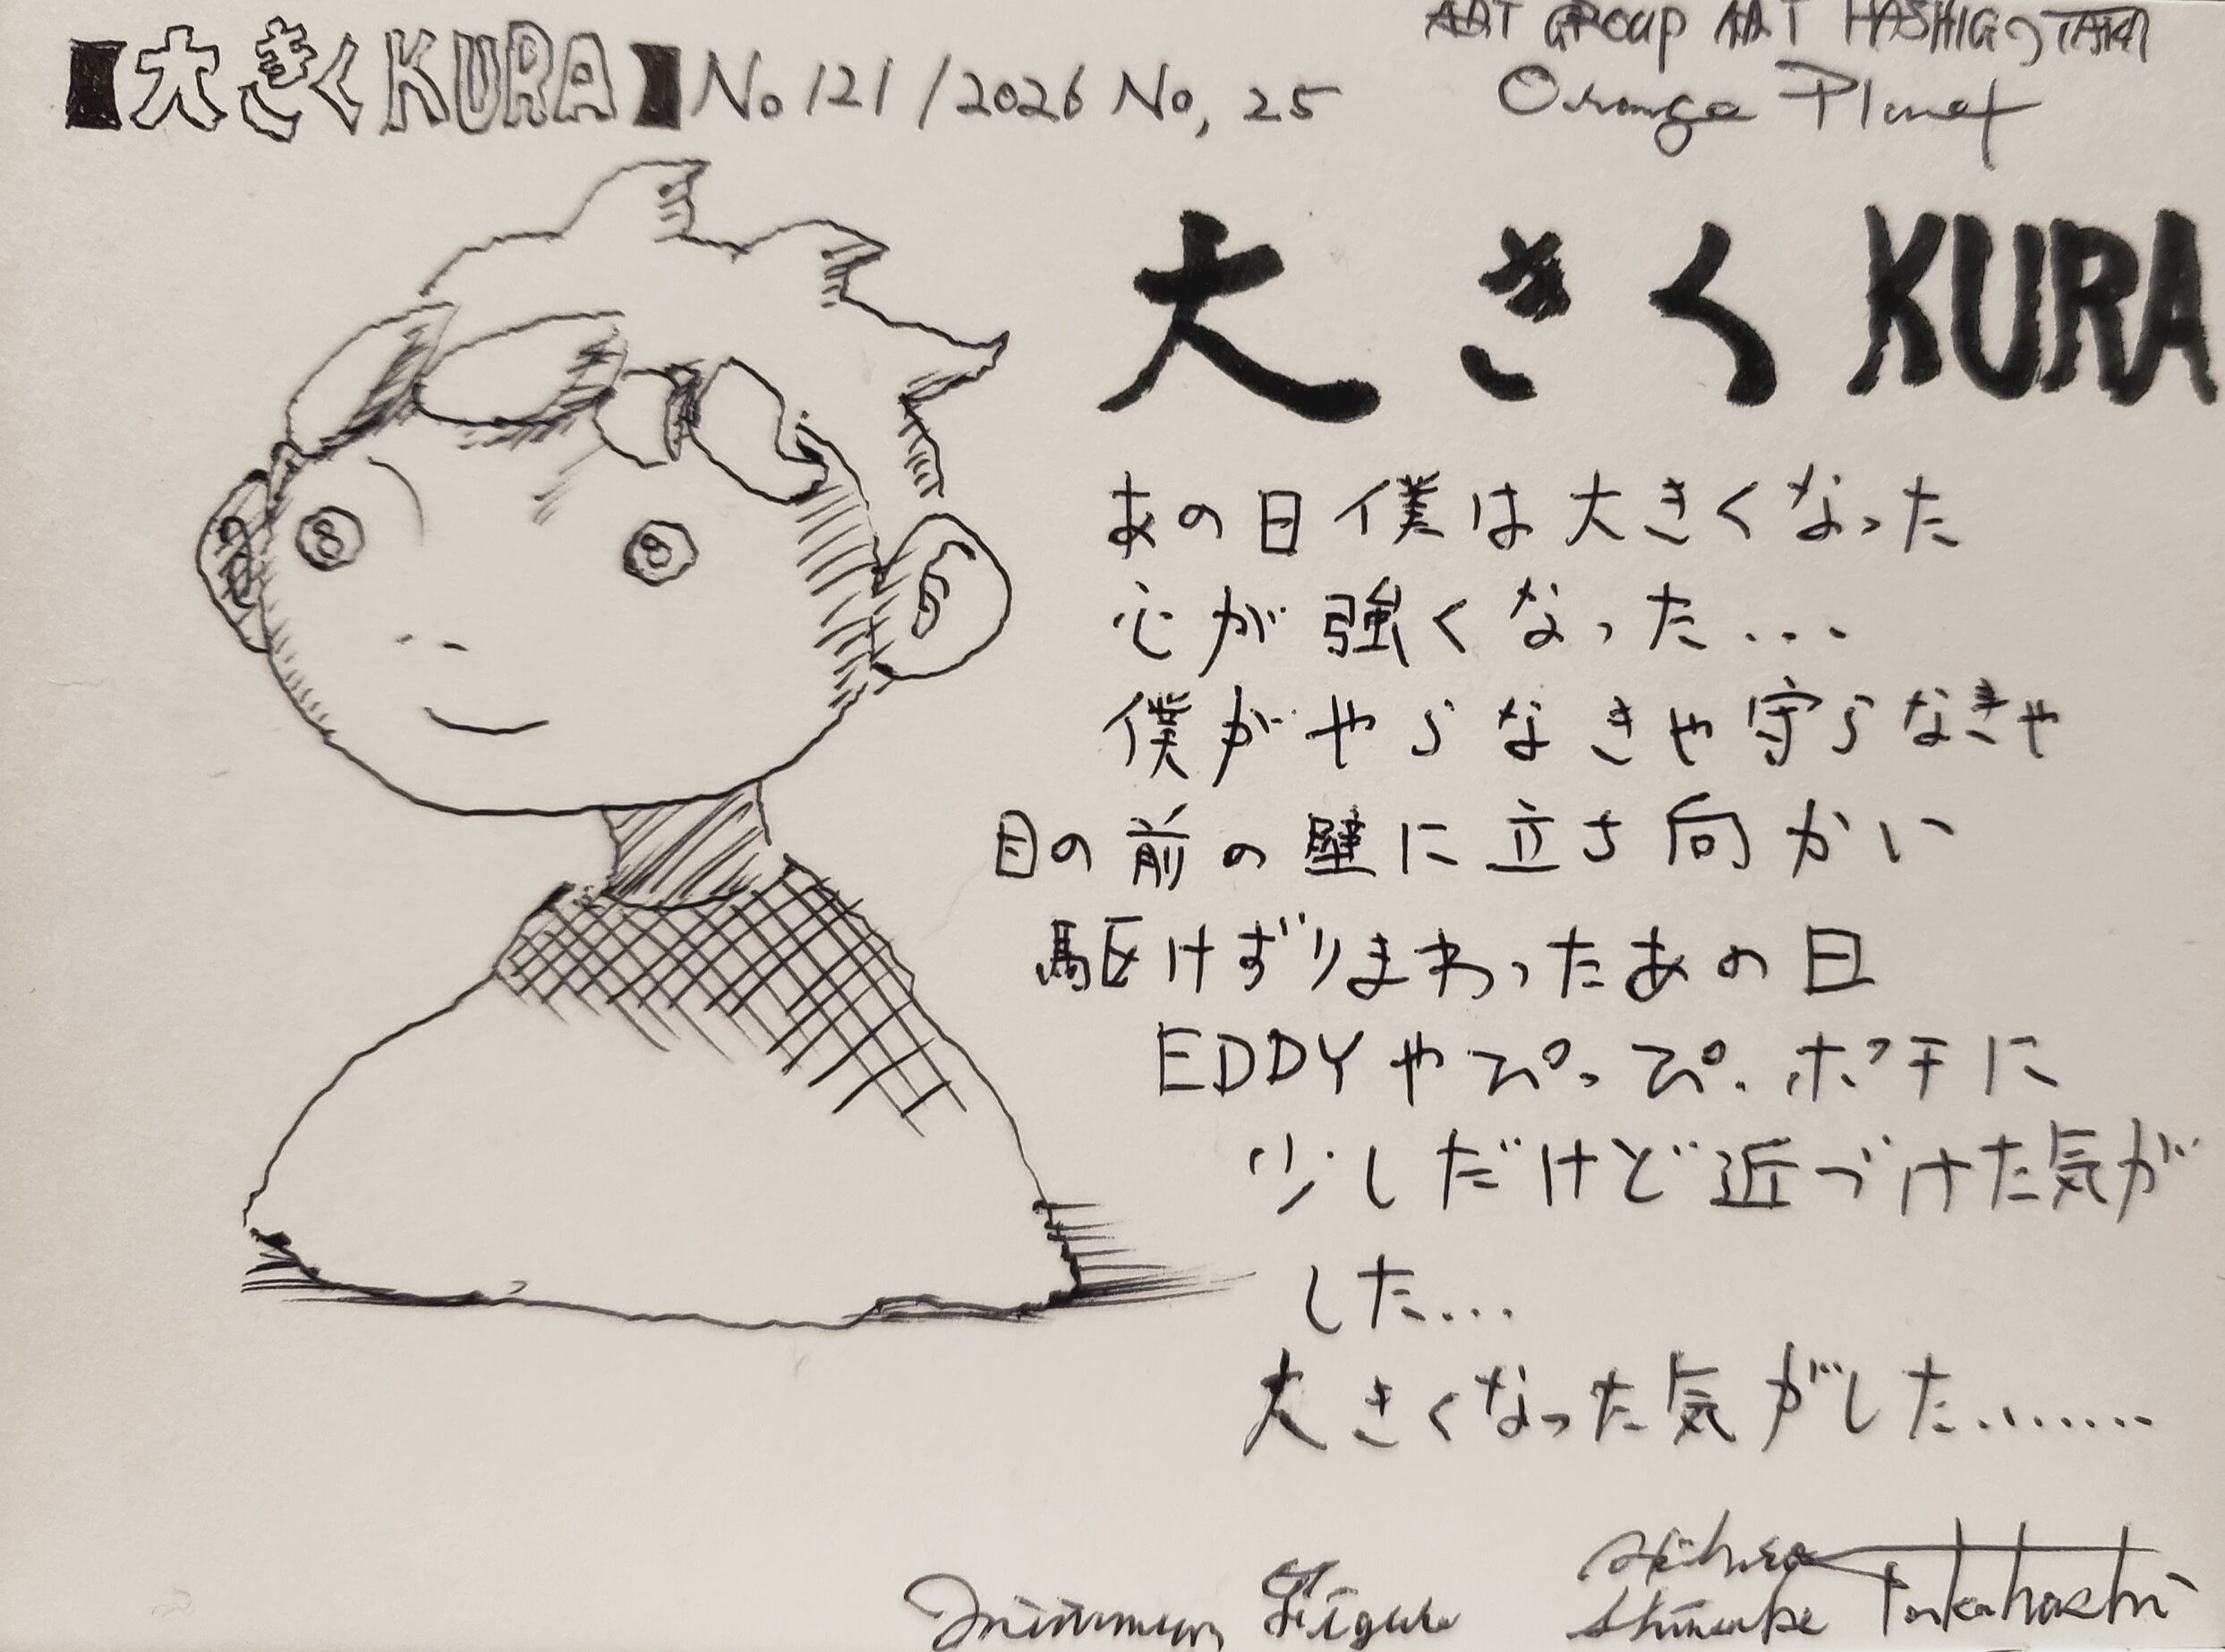 【大きくKURA】No 121/2026 No, 25
ART GROUP ART HASHIGOTAKA
Orange Planet
大きくKURA
あの日僕は大きくなった
心が強くなった...
僕がやらなきゃ守らなきゃ
目の前の壁に立ち向かい
駆けずりまわったあの日
EDDYやぴっぴ.ポチに
少しだけど近づけた気が
した...
大きくなった気がした........
Minimum Figure
Takahashi